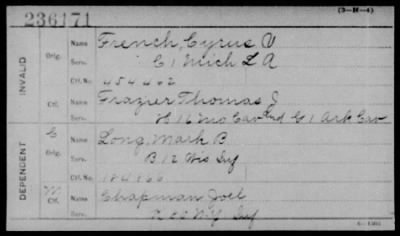 236171
(3-H-4)
INVALID
Orig. Name French, Cyrus V
Serv. C 1 Mich L A
Ctf. No. 454462
Ctf. Name Frazier Thomas J
Serv. H 16 Mo Cav and G 1 Ark Cav
DEPENDENT
C Orig. Name Long, Mark B
Serv. B 12 Wis Inf
Ctf. No.
M Ctf. Name Chapman Joel
Serv. Inf